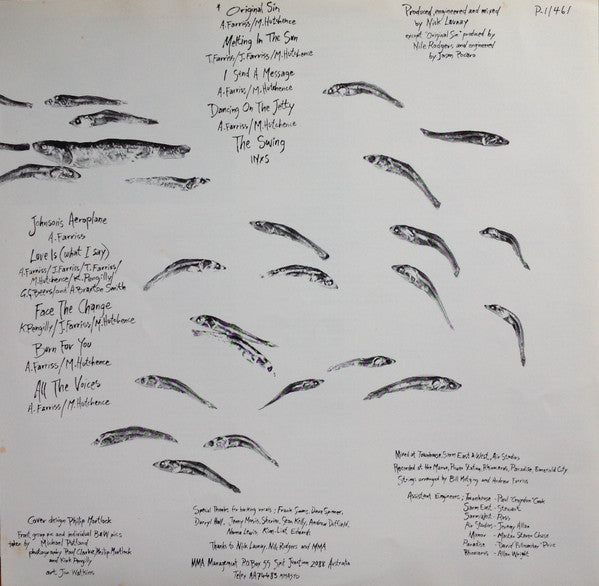 Original Sin
A. Farriss/M. Hutchence
Melting In The Sun
T. Farriss/J. Farriss/M. Hutchence
I Send A Message
A. Farriss/M. Hutchence
Dancing On The Jetty
A. Farriss/M. Hutchence
The Swing
INXS
Produced, engineered and mixed
by Nick Launay
except "Original Sin" produced by
Nile Rodgers and engineered
by Jason
P-11461
Johnson's Aeroplane
A. Farriss
Love Is (what I say)
A. Farriss/J. Farriss/T. Farriss/
M. Hutchence/K. Pengilly/
G.G. Beers/and A. Smith
Face The Change
K. Pengilly/J. Farriss/M. Hutchence
Burn For You
A. Farriss/M. Hutchence
All The Voices
A. Farriss/M. Hutchence
Mixed at Townhouse, Sigm East & West, Air Studios
Recorded at the Manor, Power Station, Rhinoceros, Paradise, Emerald City
Strings arranged by Bill and Andrew Farriss
Assistant Engineers: Townhouse - Paul "Croydon" Cook
East - Stewart
- Ross
Air Studios - Jeremy Allan
Manor - Steven Chase
Paradise - David Price
Rhinoceros - Allan Wright
Special Thanks for backing vocals - Dave
Daryl Hall, Jenny Morris, Sherine, Sean Kelly, Andrew Duffield,
Norma Lewis
Thanks to Nick Launay, Nile Rodgers and MMA
MMA Management PO Box 55 Spit Junction 2088 Australia
Cover design Philip Mortlock
Front group pic and individual B&W pics
taken by Michael Putland
photography Paul Clarke, Philip Mortlock
and Kirk Pengilly
art Jim Watkins